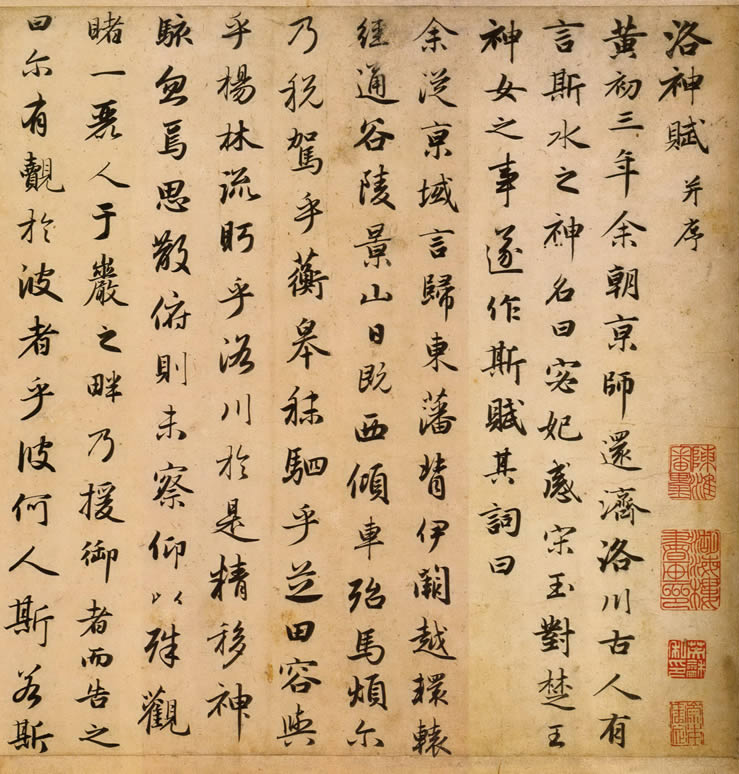 洛神賦 并序
黃初三年余朝京師還濟洛川古人有
言斯水之神名曰宓妃感宋玉對楚王
神女之事遂作斯賦其詞曰
余從京域言歸東藩背伊闕越轘轅
經通谷陵景山日既西傾車殆馬煩尔
乃税駕乎蘅皋秣駟乎芝田容與
乎楊林流眄乎洛川於是精移神
駭忽焉思散俯則未察仰以殊觀
睹一麗人于巖之畔乃援御者而告之
曰尔有覿於彼者乎彼何人斯若斯